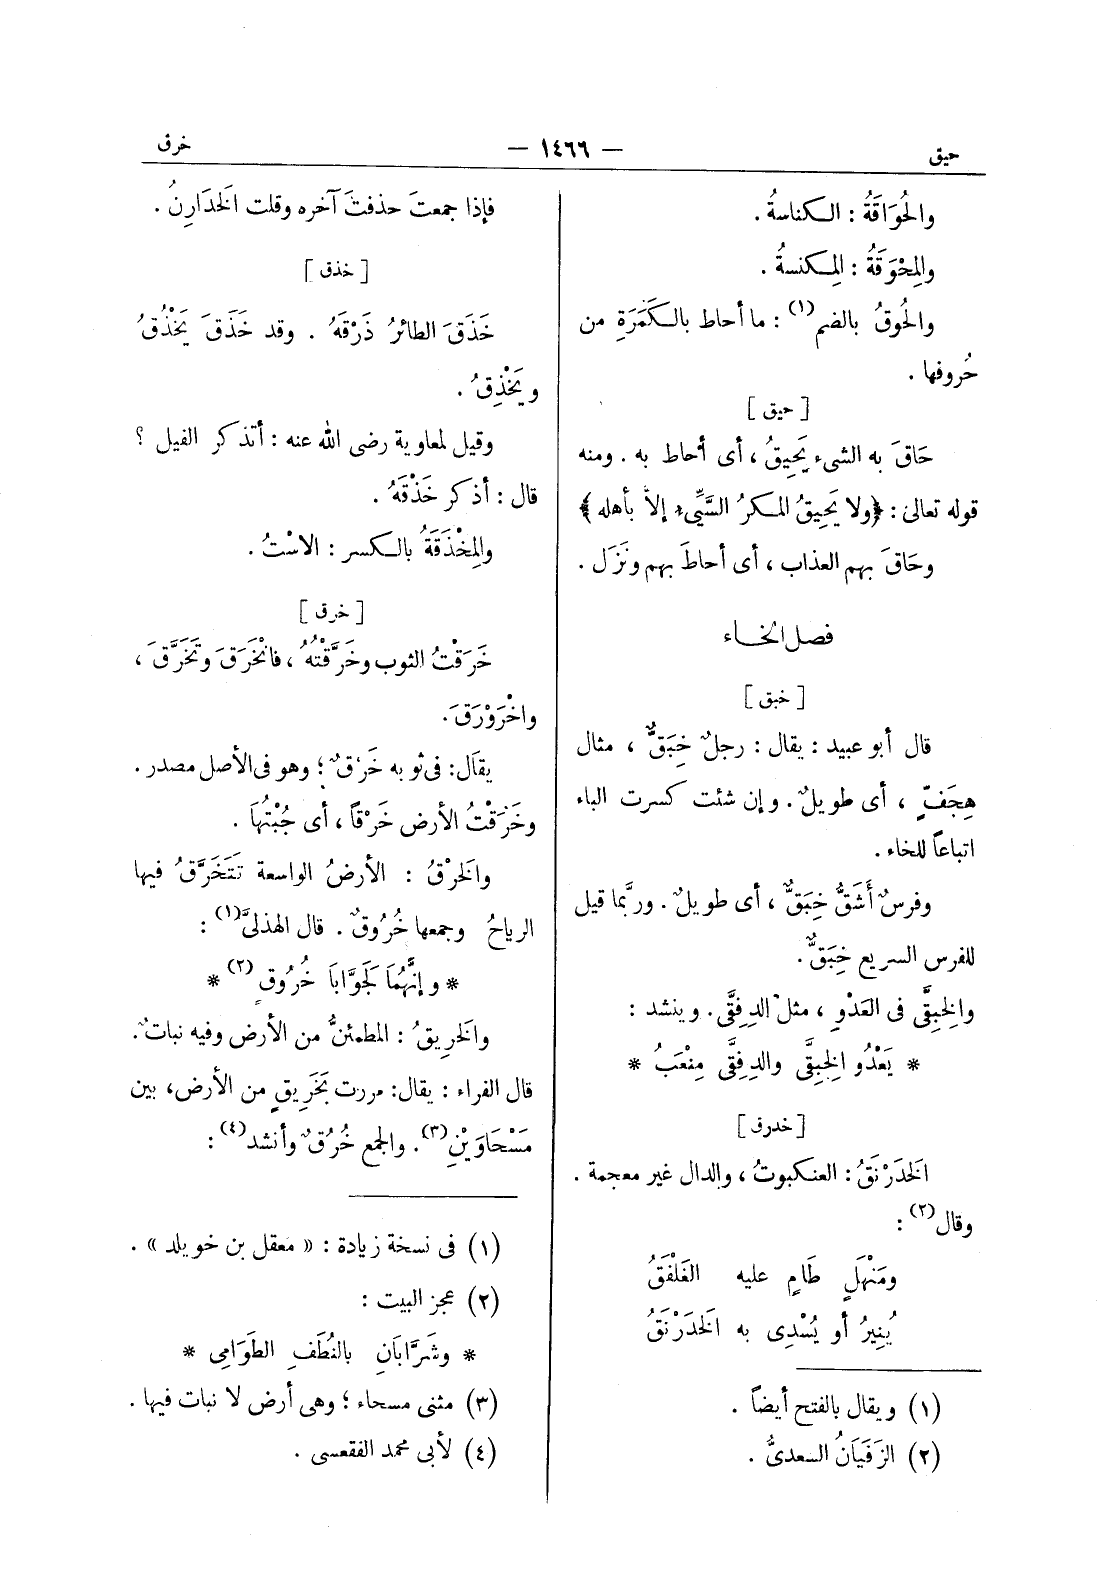 حيق
— ١٤٦٦ —
خرق
والحُوَاقَةُ : الكناسةُ .
والمِحْوَقَةُ : المِكنسةُ .
والحُوقُ بالضم(١) : ما أحاط بالكَمَرَةِ من
حُروفها .
[ حيق ]
حَاقَ به الشىء يَحِيقُ ، أى أحاط به . ومنه
قوله تعالى : ﴿ولا يَحِيقُ المكرُ السَّيِّىء إلاَّ بأهله﴾
وحَاقَ بهم العذاب ، أى أحاطَ بهم ونَزَل .
فصل الخاء
[ خبق ]
قال أبو عبيد : يقال : رجلٌ خِبَقٌّ ، مثال
هِجَفٍّ ، أى طويلٌ . وإن شئت كسرت الباء
اتباعاً للخاء .
وفرسٌ أَشَقُّ خِبَقٌّ ، أى طويلٌ . وربَّما قيل
للفرس السريع خِبَقٌّ .
والخِبِقَّى فى العَدْوِ ، مثل الدِفِقَّى . وينشد :
* يَعْدُو الخِبِقَّى والدِفِقَّى مِنْعَبُ *
[ خدرق ]
الخَدَرْنَقُ : العنكبوتُ ، والدال غير معجمة .
وقال(٢) :
ومَنْهَلٍ طَامٍ عليه الغَلْفَقُ
يُنِيرُ أو يُسْدِى به الخَدَرْنَقُ
(١) ويقال بالفتح أيضاً .
(٢) الزَفَيَانُ السعدىُّ .
فإذا جمعتَ حذفتَ آخره وقلت الخَدَارِنُ .
[ خذق ]
خَذَقَ الطائرُ ذَرْقَهُ . وقد خَذَقَ يَخْذُقُ
ويَخْذِقُ .
وقيل لمعاوية رضى الله عنه : أتذكر الفيل ؟
قال : أذكر خَذْقَهُ .
والمِخْذَقَةُ بالكسر : الاسْتُ .
[ خرق ]
خَرَقْتُ الثوب وخَرَّقْتُهُ ، فانْخَرَقَ وتَخَرَّقَ ،
واخْرَوْرَقَ .
يقال : فى ثوبه خَرْقٌ ؛ وهو فى الأصل مصدر .
وخَرَقْتُ الأرض خَرْقاً ، أى جُبْتُهَا .
والخَرْقُ : الأرضُ الواسعة تَتَخَرَّقُ فيها
الرياحُ وجمعها خُرُوقٌ . قال الهذلىّ(١) :
* وإنَّهُمَا لَجَوَّابَا خُرُوقٍ(٢) *
والخَرِيقُ : المطمئنُّ من الأرض وفيه نباتٌ .
قال الفراء : يقال : مررت بخَرِيقٍ من الأرض ، بين
مَسْحَاوَيْنِ(٣) . والجمع خُرُقٌ وأنشد(٤) :
(١) فى نسخة زيادة : « معقل بن خويلد » .
(٢) عجز البيت :
* وشَرَّابَانِ بالنُطَفِ الطَوَامِى *
(٣) مثنى مسحاء ؛ وهى أرض لا نبات فيها .
(٤) لأبى محمد الفقعسى .